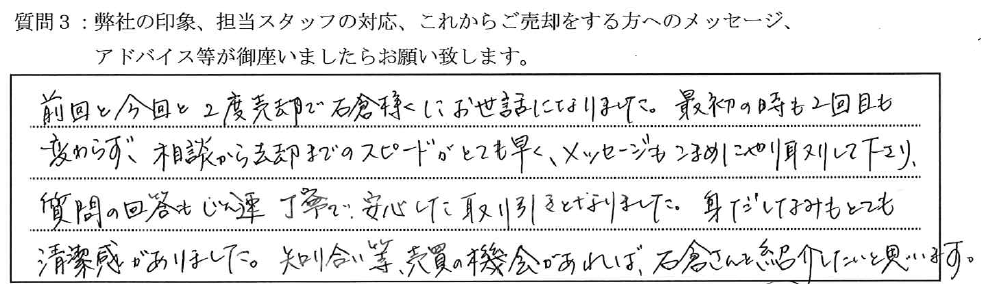 質問3：弊社の印象、担当スタッフの対応、これからご売却をする方へのメッセージ、
アドバイス等が御座いましたらお願い致します。
前回と今回と2度売却で石倉様にお世話になりました。最初の時も2回目も
変わらず、相談から売却までのスピードがとても早く、メッセージもこまめにやり取りして下さり、
質問の回答も迅速丁寧で、安心した取り引きとなりました。身だしなみもとても
清潔感がありました。知り合い等、売買の機会があれば、石倉さんを紹介したいと思います。